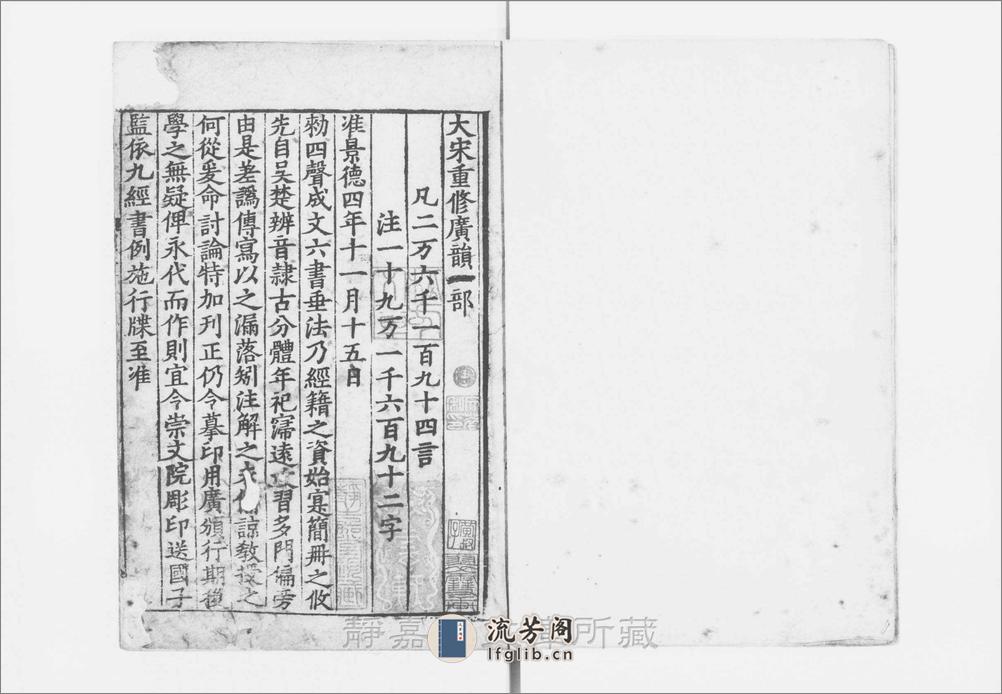 大宋重修廣韻一部
凡二万六千一百九十四言
注一十九万一千六百九十二字
准景德四年十一月十五日
勑四聲成文六書垂法乃經籍之資始寔簡冊之攸
先自吴楚辨音隷古分體年祀寖遠攻習多門偏旁
由是差譌傳寫以之漏落矧注解之未諒教授之
何從爰命討論特加刊正仍令摹印用廣頒行期後
學之無疑俾永代而作則宜令崇文院彫印送國子
監依九經書例施行牒至准
靜嘉所藏
流芳阁
lfglib.cn